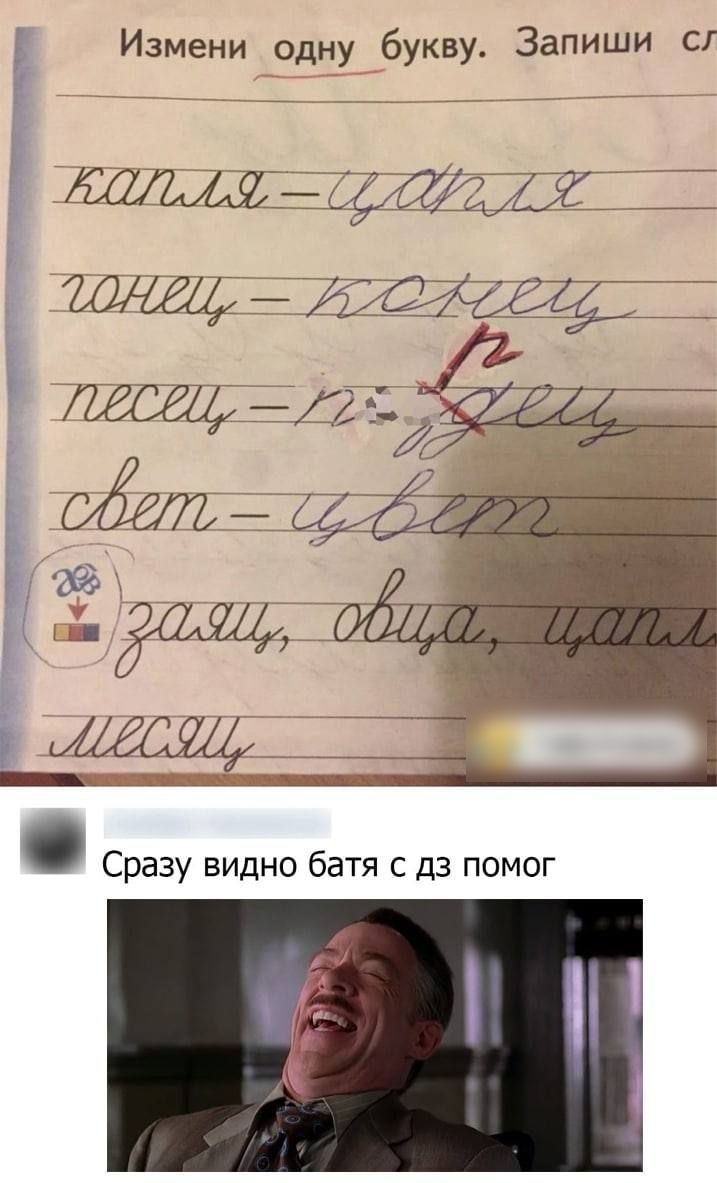 Измени одну букву. Запиши сл
капля – цапля
гонец – конец
песец – п дец
р
свет – цвет
заяц, овца, цапл
месяц
Сразу видно батя с дз помог